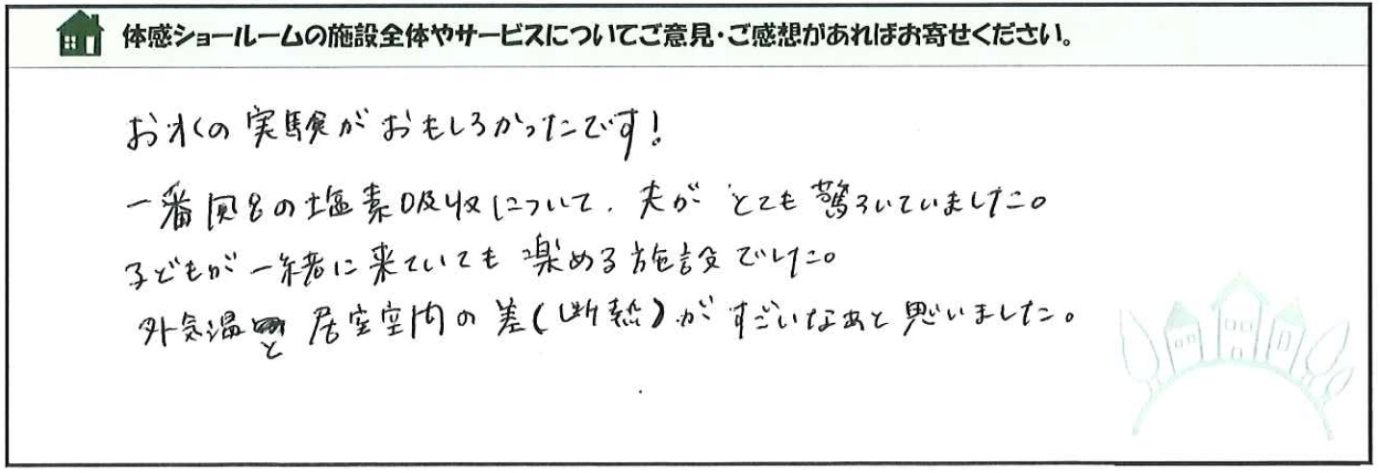 体感ショールームの施設全体やサービスについてご意見・ご感想があればお寄せください。
お水の実験がおもしろかったです!
一番風呂の塩素吸収について、夫がとても驚ろいていました。
子どもが一緒に来ていても楽める施設でした。
外気温と居室空間の差(断熱)がすごいなあと思いました。